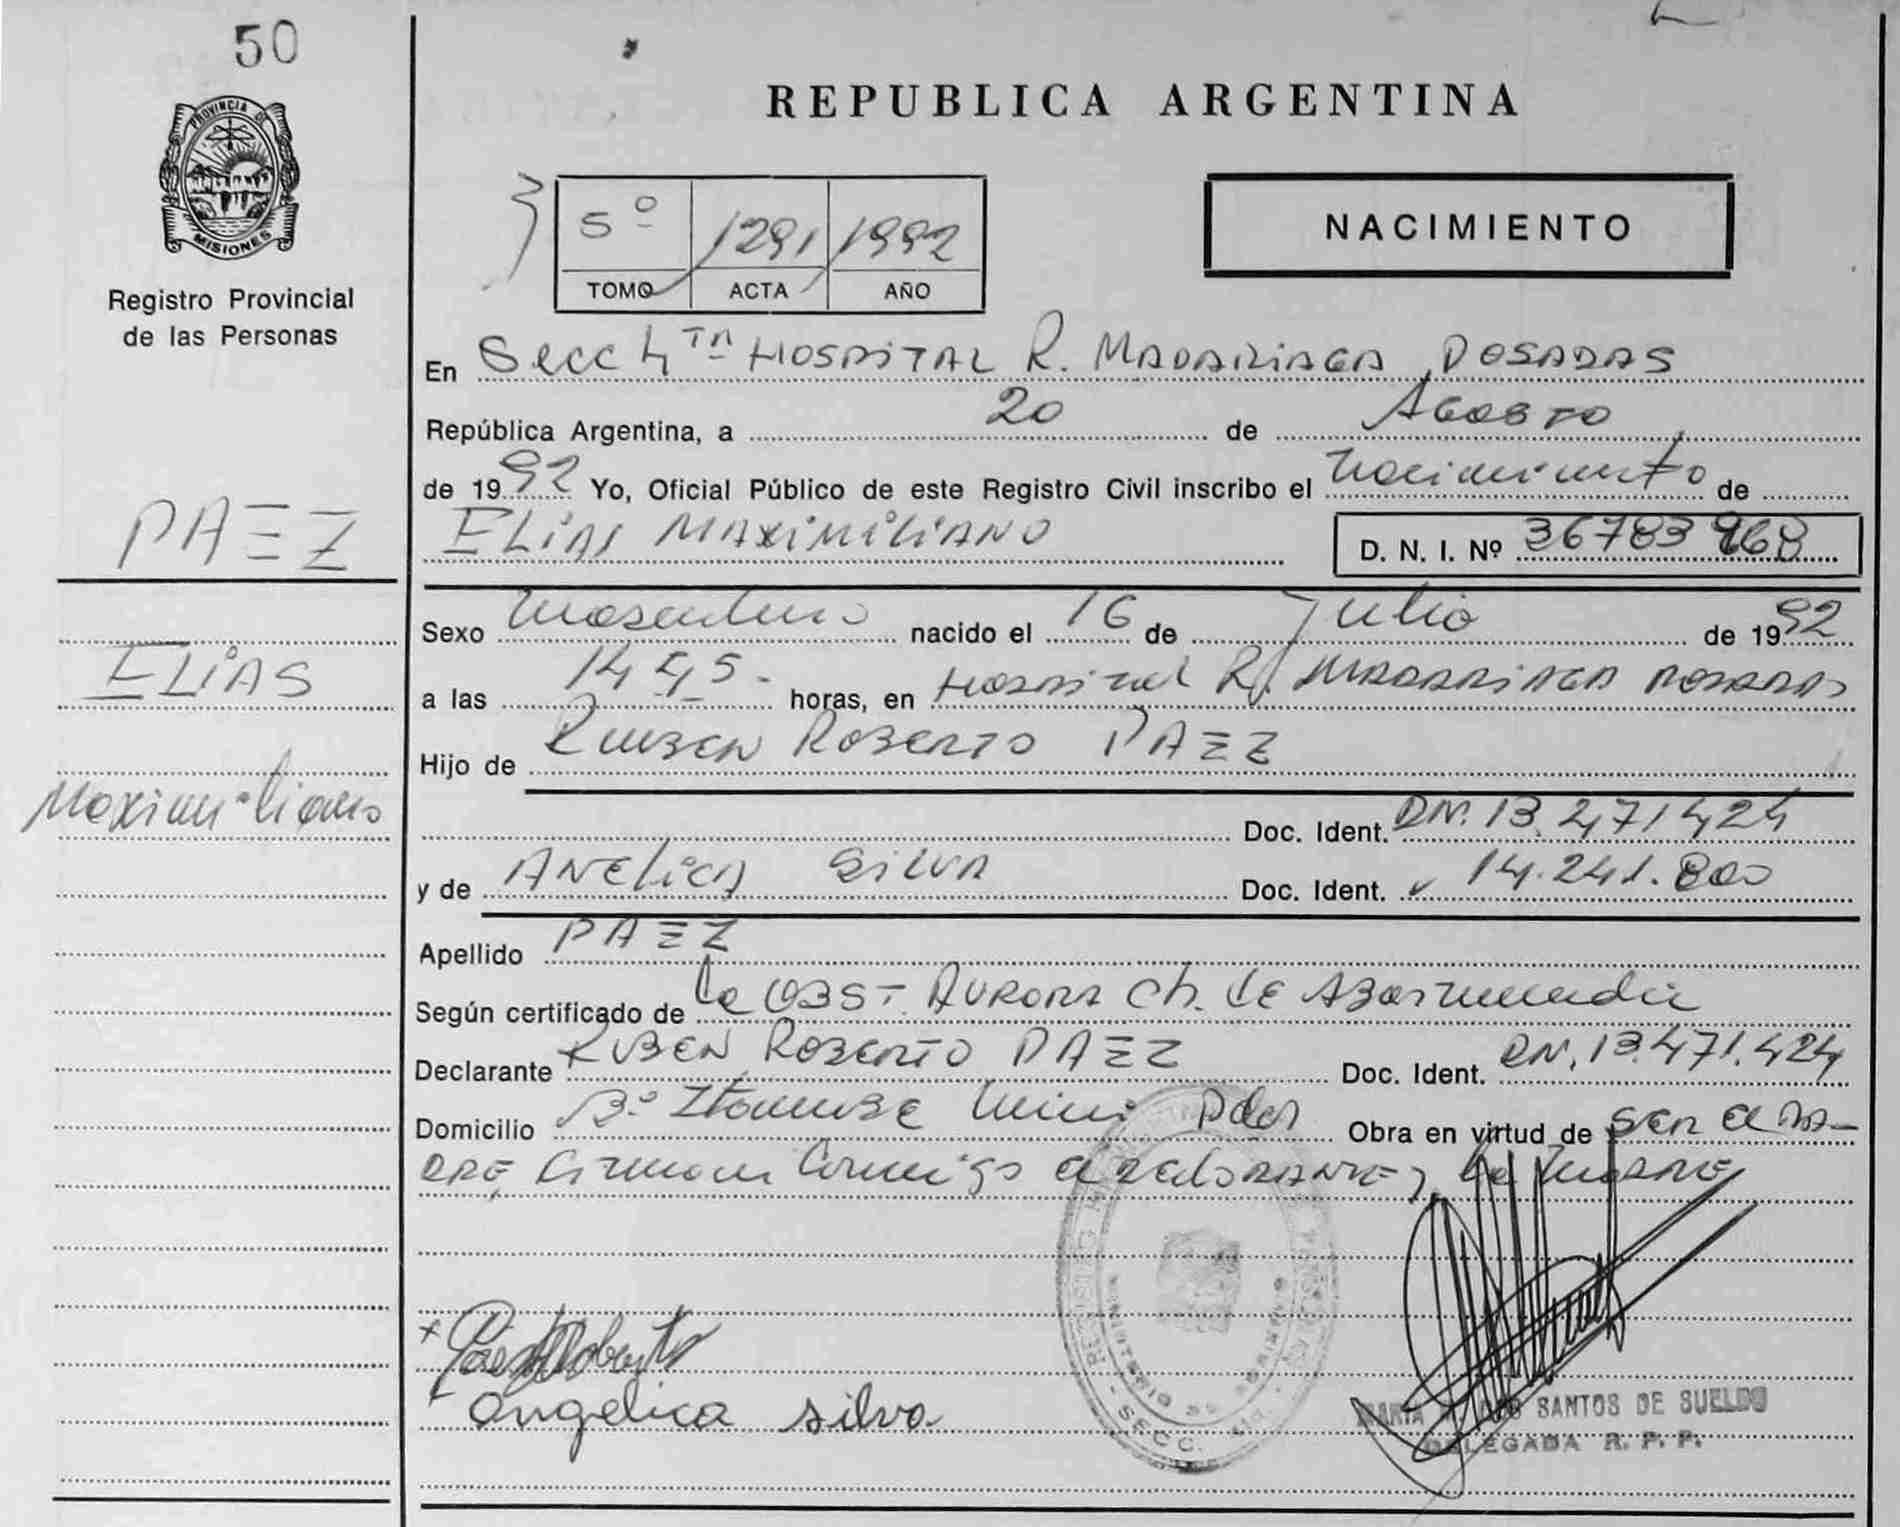 50
PROVINCIA DE
MISIONES
Registro Provincial
de las Personas
REPUBLICA ARGENTINA
5º 1291 1992
TOMO ACTA AÑO
NACIMIENTO
En Secc 4TA HOSPITAL R. MADARIAGA POSADAS
República Argentina, a 20 de AGOSTO
de 1992 Yo, Oficial Público de este Registro Civil inscribo el nacimiento de
PAEZ
ELIAS MAXIMILIANO D. N. I. Nº 36783968
Sexo masculino nacido el 16 de Julio de 1992
ELIAS
a las 14 45 horas, en Hospital R. MADARIAGA POSADAS
Hijo de RUBEN ROBERTO PAEZ
Maximiliano
Doc. Ident. DN. 13.471424
y de ANGELICA SILVA Doc. Ident. 14.241.800
Apellido PAEZ
Según certificado de la OBST. AURORA CH. de
Declarante RUBEN ROBERTO PAEZ Doc. Ident. DN. 13.471.424
Domicilio Bº Itaembe Mini Pdas Obra en virtud de ser el PA-
DRE, Firman conmigo el DECLARANTE y la MADRE
Paez Roberto
Angelica silva
SECC. 4ta
MARIA DOS SANTOS DE SUELDO
DELEGADA R. P. P.